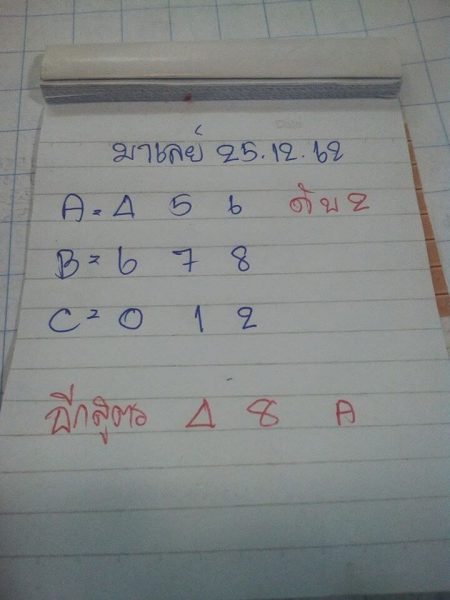 มาเลย์ 25.12.62
A = 4 5 6 ดับ 2
B = 6 7 8
C = 0 1 2
อีกสูตร 4 8 A